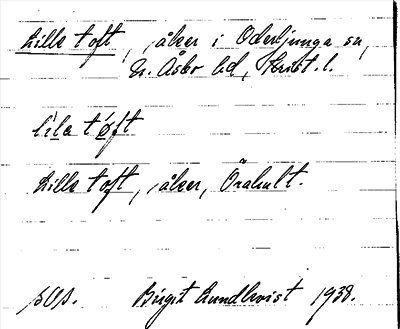 Lille toft, åker i Oderljunga sn,
N. Åsbo hd, Krist. l.
lilə tøft
Lille toft, åker, Örahult.
Birgit Lundkvist 1938.